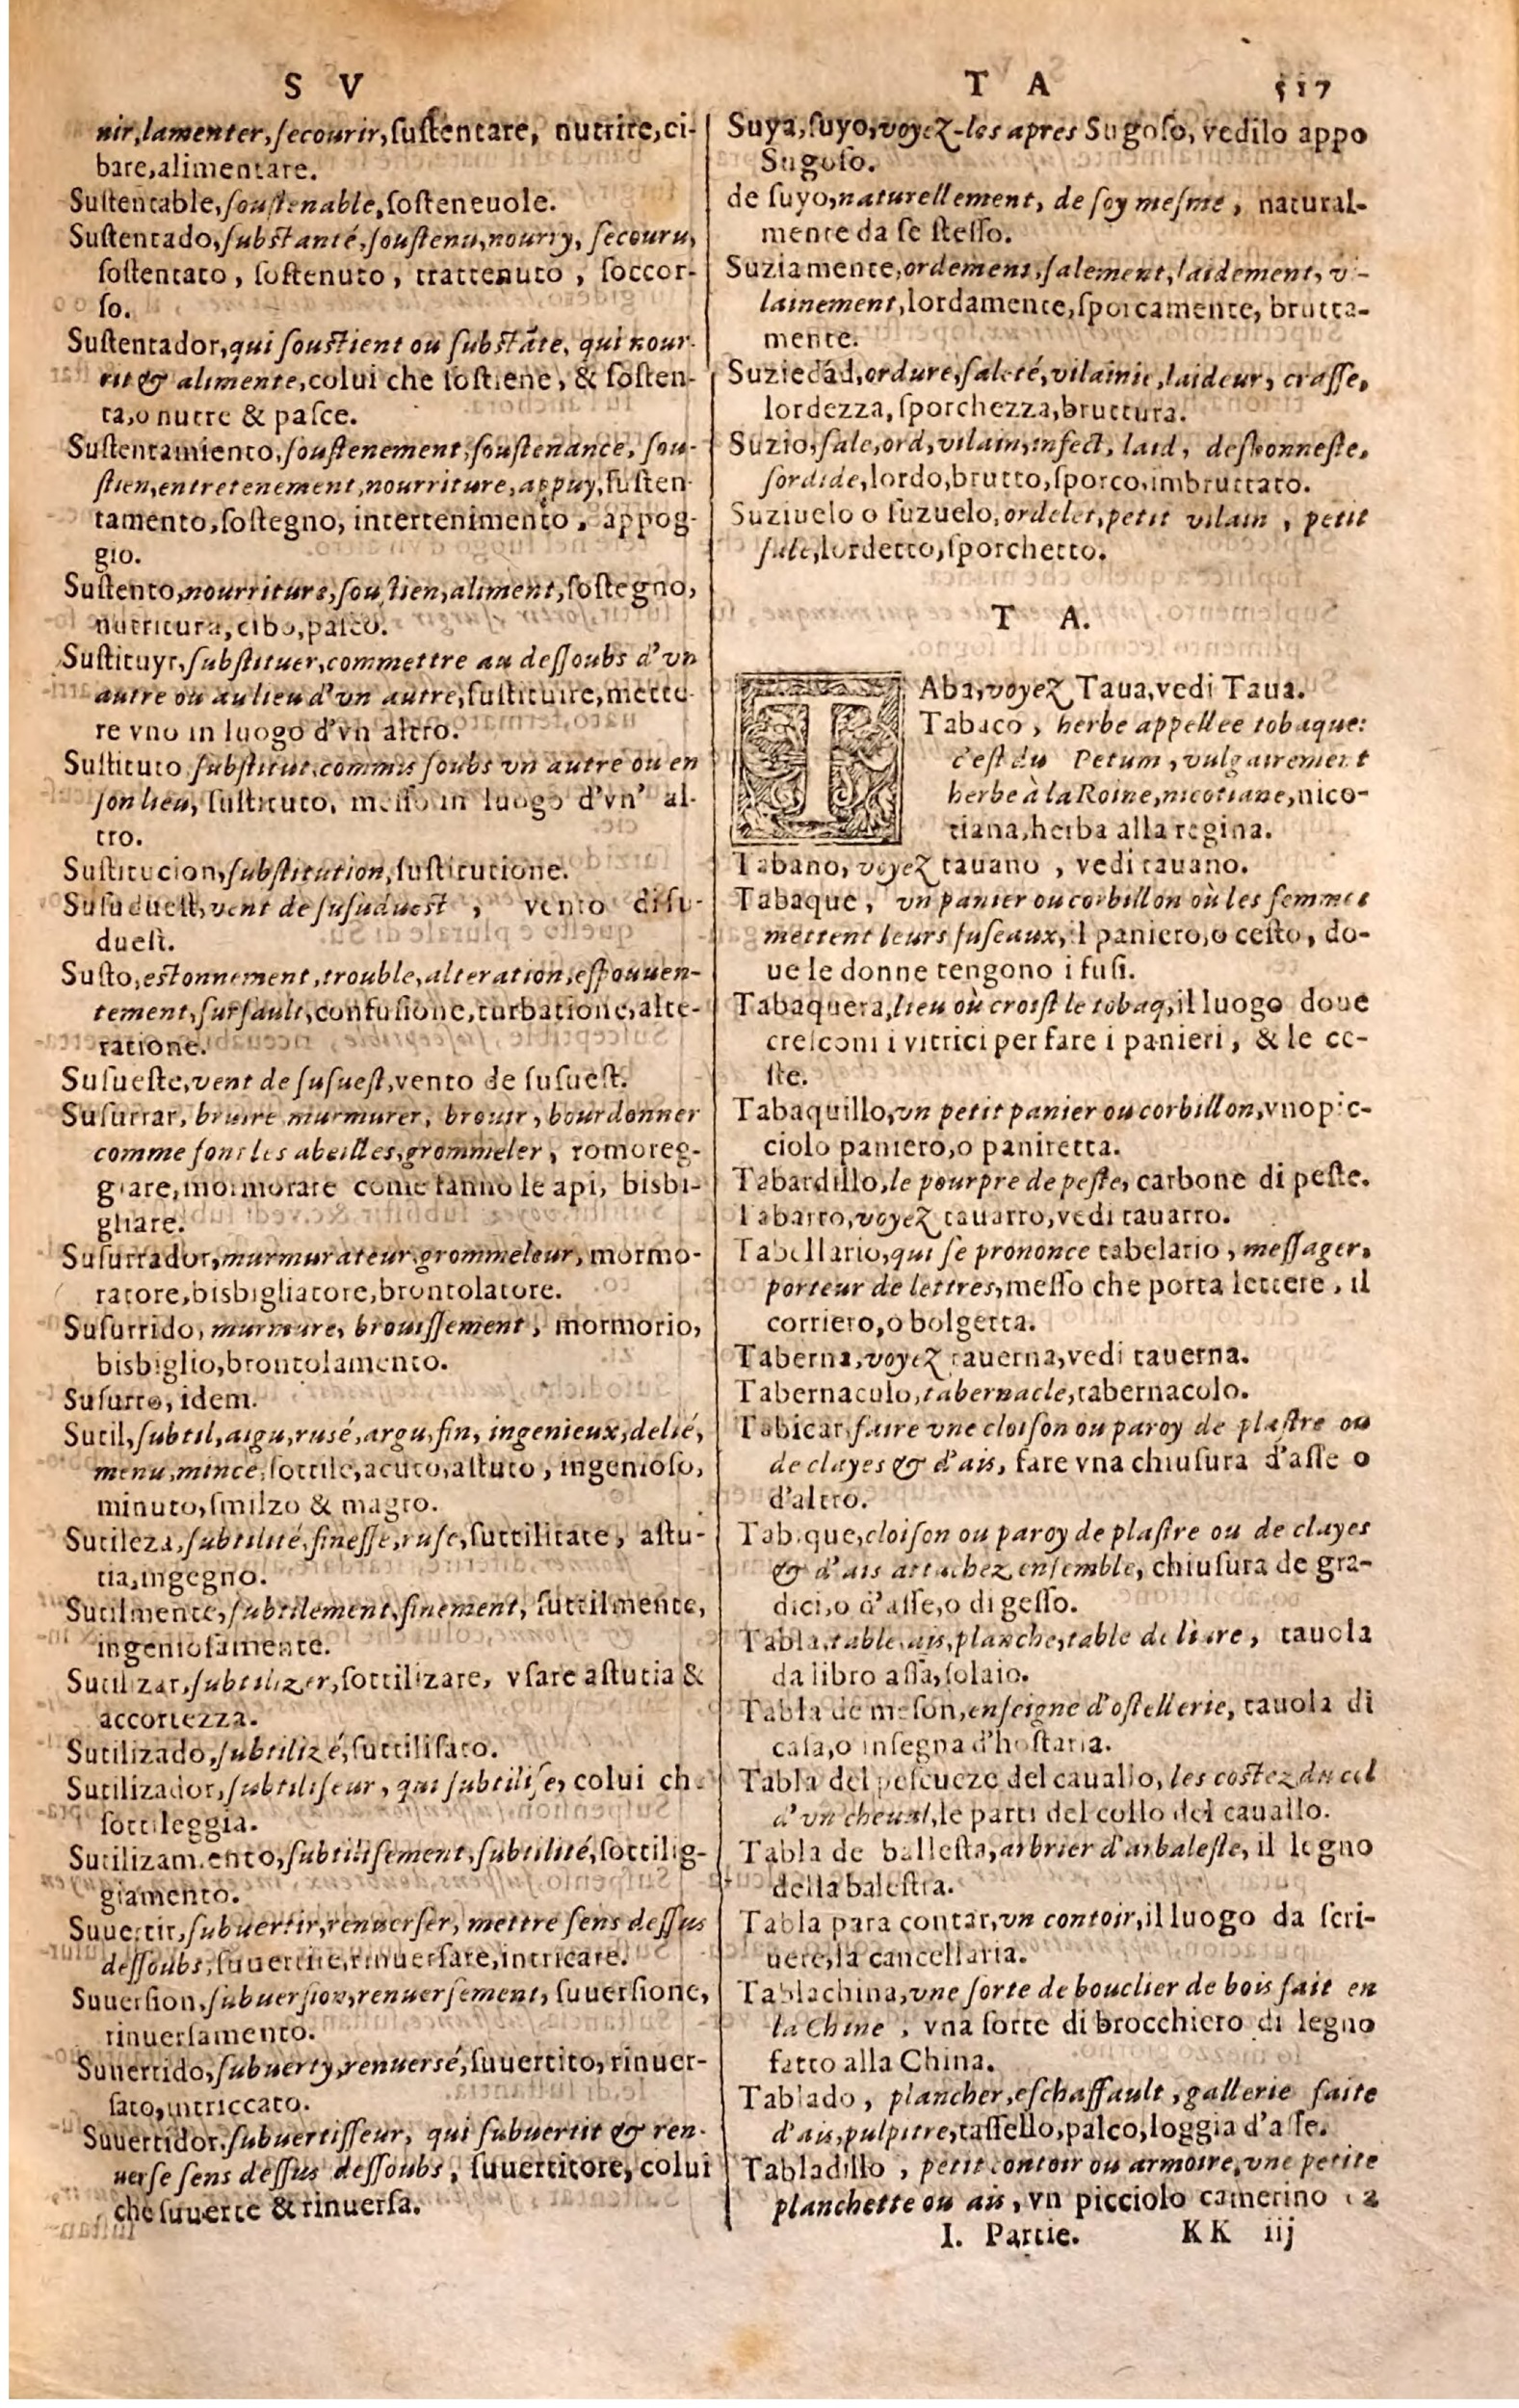 S V
nir, lamenter, secourir, sustentare, nutrire, ci-
bare, alimentare.
Sustentable, soustenable, sosteneuole.
Sustentado, substanté, soustenu, nourry, secouru,
sostentato, sostenuto, trattenuto, soccor-
so.
Sustentador, qui soustient ou substãte, qui nour-
rit & alimente, colui che sostiene, & sosten-
ta, o nutre & pasce.
Sustentamiento, soustenement, soustenance, sou-
stien, entretenement, nourriture, appuy, susten-
tamento, sostegno, intertenimento, appog-
gio.
Sustento, nourriture, soustien, aliment, sostegno,
nutritura, cibo, pasco.
Sustituyr, substituer, commettre au dessoubs d'vn
autre ou au lieu d'vn autre, sustituire, mette-
re vno in luogo d'vn altro.
Sustituto substitut, commis soubs vn autre ou en
son lieu, sustituto, messo in luogo d'vn' al-
tro.
Sustitucion, substitution, sustitutione.
Susuduest, vent de susuduest, vento di su-
duest.
Susto, estonnement, trouble, alteration, espouuen-
tement, sursault, confusione, turbatione, alte-
ratione.
Susueste, vent de susuest, vento de susuest.
Susurrar, bruire murmurer, brouir, bourdonner
comme font les abeilles, grommeler, romoreg-
giare, mormorare come fanno le api, bisbi-
gliare.
Susurrador, murmurateur, grommeleur, mormo-
ratore, bisbigliatore, brontolatore.
Susurrido, murmure, brouissement, mormorio,
bisbiglio, brontolamento.
Susurro, idem.
Sutil, subtil, aigu, rusé, argu, fin, ingenieux, delié,
menu, mince, sottile, acuto, astuto, ingenioso,
minuto, smilzo & magro.
Sutileza, subtilité, finesse, ruse, suttilitate, astu-
tia, ingegno.
Sutilmente, subtilement, finement, suttilmente,
ingeniosamente.
Sutilizar, subtilizer, sottilizare, vsare astutia &
accortezza.
Sutilizado, subtilizé, suttilisato.
Sutilizador, subtiliseur, qui subtilise, colui ch
sottileggia.
Sutilizamiento, subtilisement, subtilité, sottilig-
giamento.
Suuertir, subuertir, renuerser, mettre sens dessus
dessoubs, suuertire, rinuersare, intricare.
Suuersion, subuersion, renuersement, suuersione,
rinuersamento.
Suuertido, subuerty, renuersé, suuertito, rinuer-
sato, intriccato.
Suuertidor, subuertisseur, qui subuertit & ren-
uerse sens dessus dessoubs, suuertitore, colui
che suuerte & rinuersa.
T A 517
Suya, suyo, voyez-les apres Sugoso, vedilo appo
Sugoso.
de suyo, naturellement, de soy mesme, natural-
mente da se stesso.
Suziamente, ordement, salement, laidement, vi-
lainement, lordamente, sporcamente, brutta-
mente.
Suziedád, ordure, saleté, vilainie, laideur, crasse,
lordezza, sporchezza, bruttura.
Suzio, sale, ord, vilain, infect, laid, deshonneste,
sordide, lordo, brutto, sporco, imbruttato.
Suziuelo o suzuelo, ordelet, petit vilain, petit
sale, lordetto, sporchetto.
T A.
TAba, voyez Taua, vedi Taua.
Tabaco, herbe appellee tobaque:
c'est du Petum, vulgairement
herbe à la Roine, nicotiane, nico-
tiana, herba alla regina.
Tabano, voyez tauano, vedi tauano.
Tabaque, vn panier ou corbillon où les femmes
mettent leurs fuseaux, il paniero, o cesto, do-
ue le donne tengono i fusi.
Tabaquera, lieu où croist le tobaq, il luogo doue
cresconi i vitrici per fare i panieri, & le ce-
ste.
Tabaquillo, vn petit panier ou corbillon, vno pic-
ciolo paniero, o paniretta.
Tabardillo, le pourpre de peste, carbone di peste.
Tabarro, voyez tauarro, vedi tauarro.
Tabellario, qui se prononce tabelario, messager,
porteur de lettres, messo che porta lettere, il
corriero, o bolgetta.
Taberna, voyez tauerna, vedi tauerna.
Tabernaculo, tabernacle, tabernacolo.
Tabicar, faire vne cloison ou paroy de plastre ou
de clayes & d'ais, fare vna chiusura d'asse o
d'altro.
Tabique, cloison ou paroy de plastre ou de clayes
& d'ais attachez ensemble, chiusura de gra-
dici, o d'asse, o di gesso.
Tabla, table, ais, planche, table de liure, tauola
da libro assa, solaio.
Tabla de meson, enseigne d'ostellerie, tauola di
casa, o insegna d'hostaria.
Tabla del pescueze del cauallo, les costez du col
d'vn cheual, le parti del collo del cauallo.
Tabla de ballesta, arbrier d'arbaleste, il legno
della balestra.
Tabla para contar, vn contoir, il luogo da scri-
uere, la cancellaria.
Tablachina, vne sorte de bouclier de bois fait en
la Chine, vna sorte di brocchiero di legno
fatto alla China.
Tablado, plancher, eschaffault, gallerie faite
d'ais, pulpitre, tassello, palco, loggia d'asse.
Tabladillo, petit contoir ou armoire, vne petite
planchette ou ais, vn picciolo camerino
I. Partie. KK iij